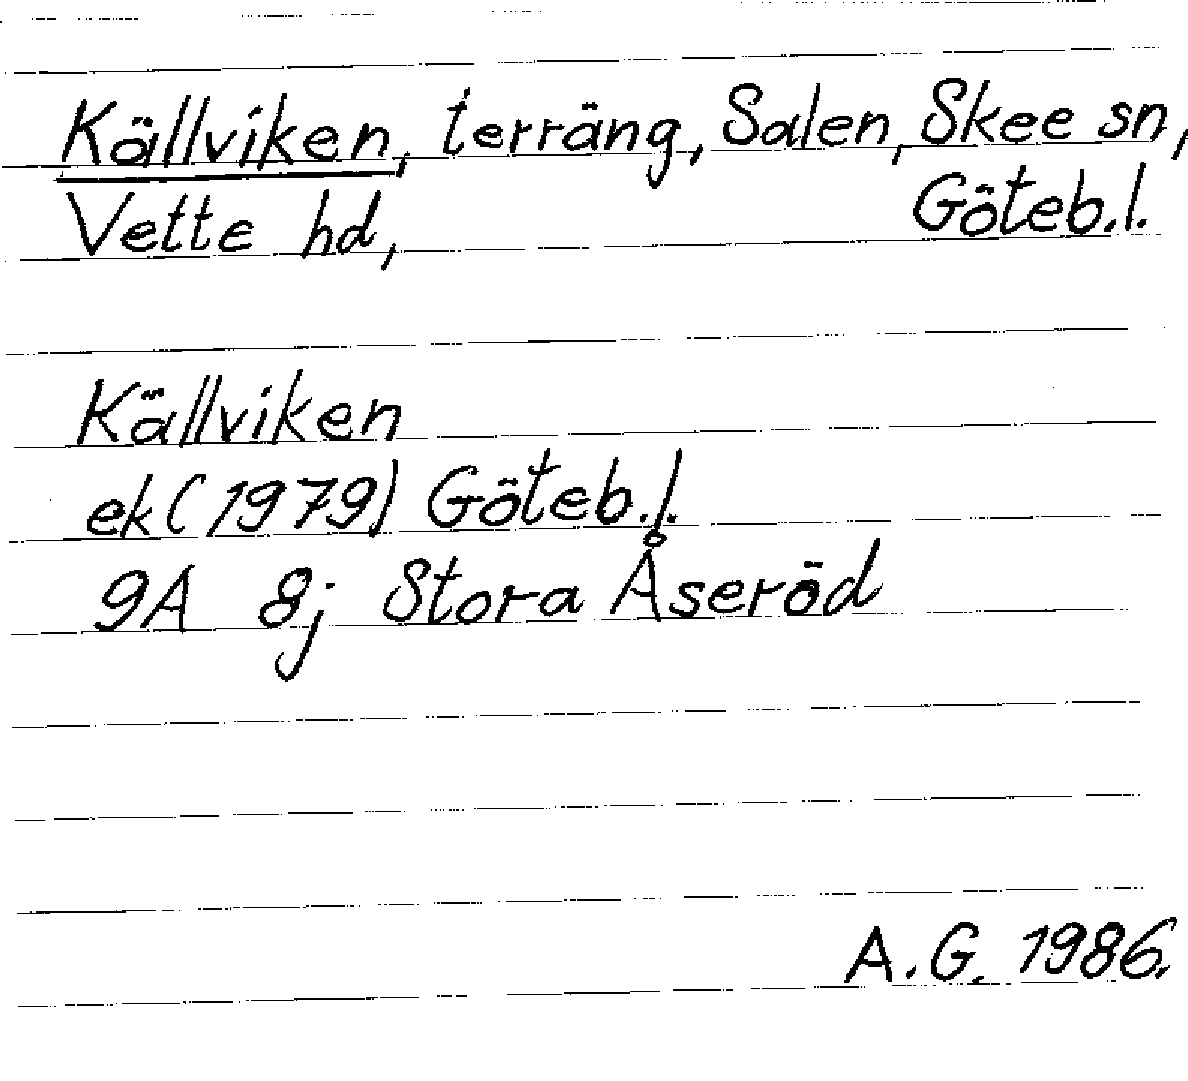 Källviken, terräng, Salen, Skee sn,
Vette hd, Göteb.l.
Källviken
ek (1979) Göteb.l.
9A 8j Stora Åseröd
A.G. 1986.